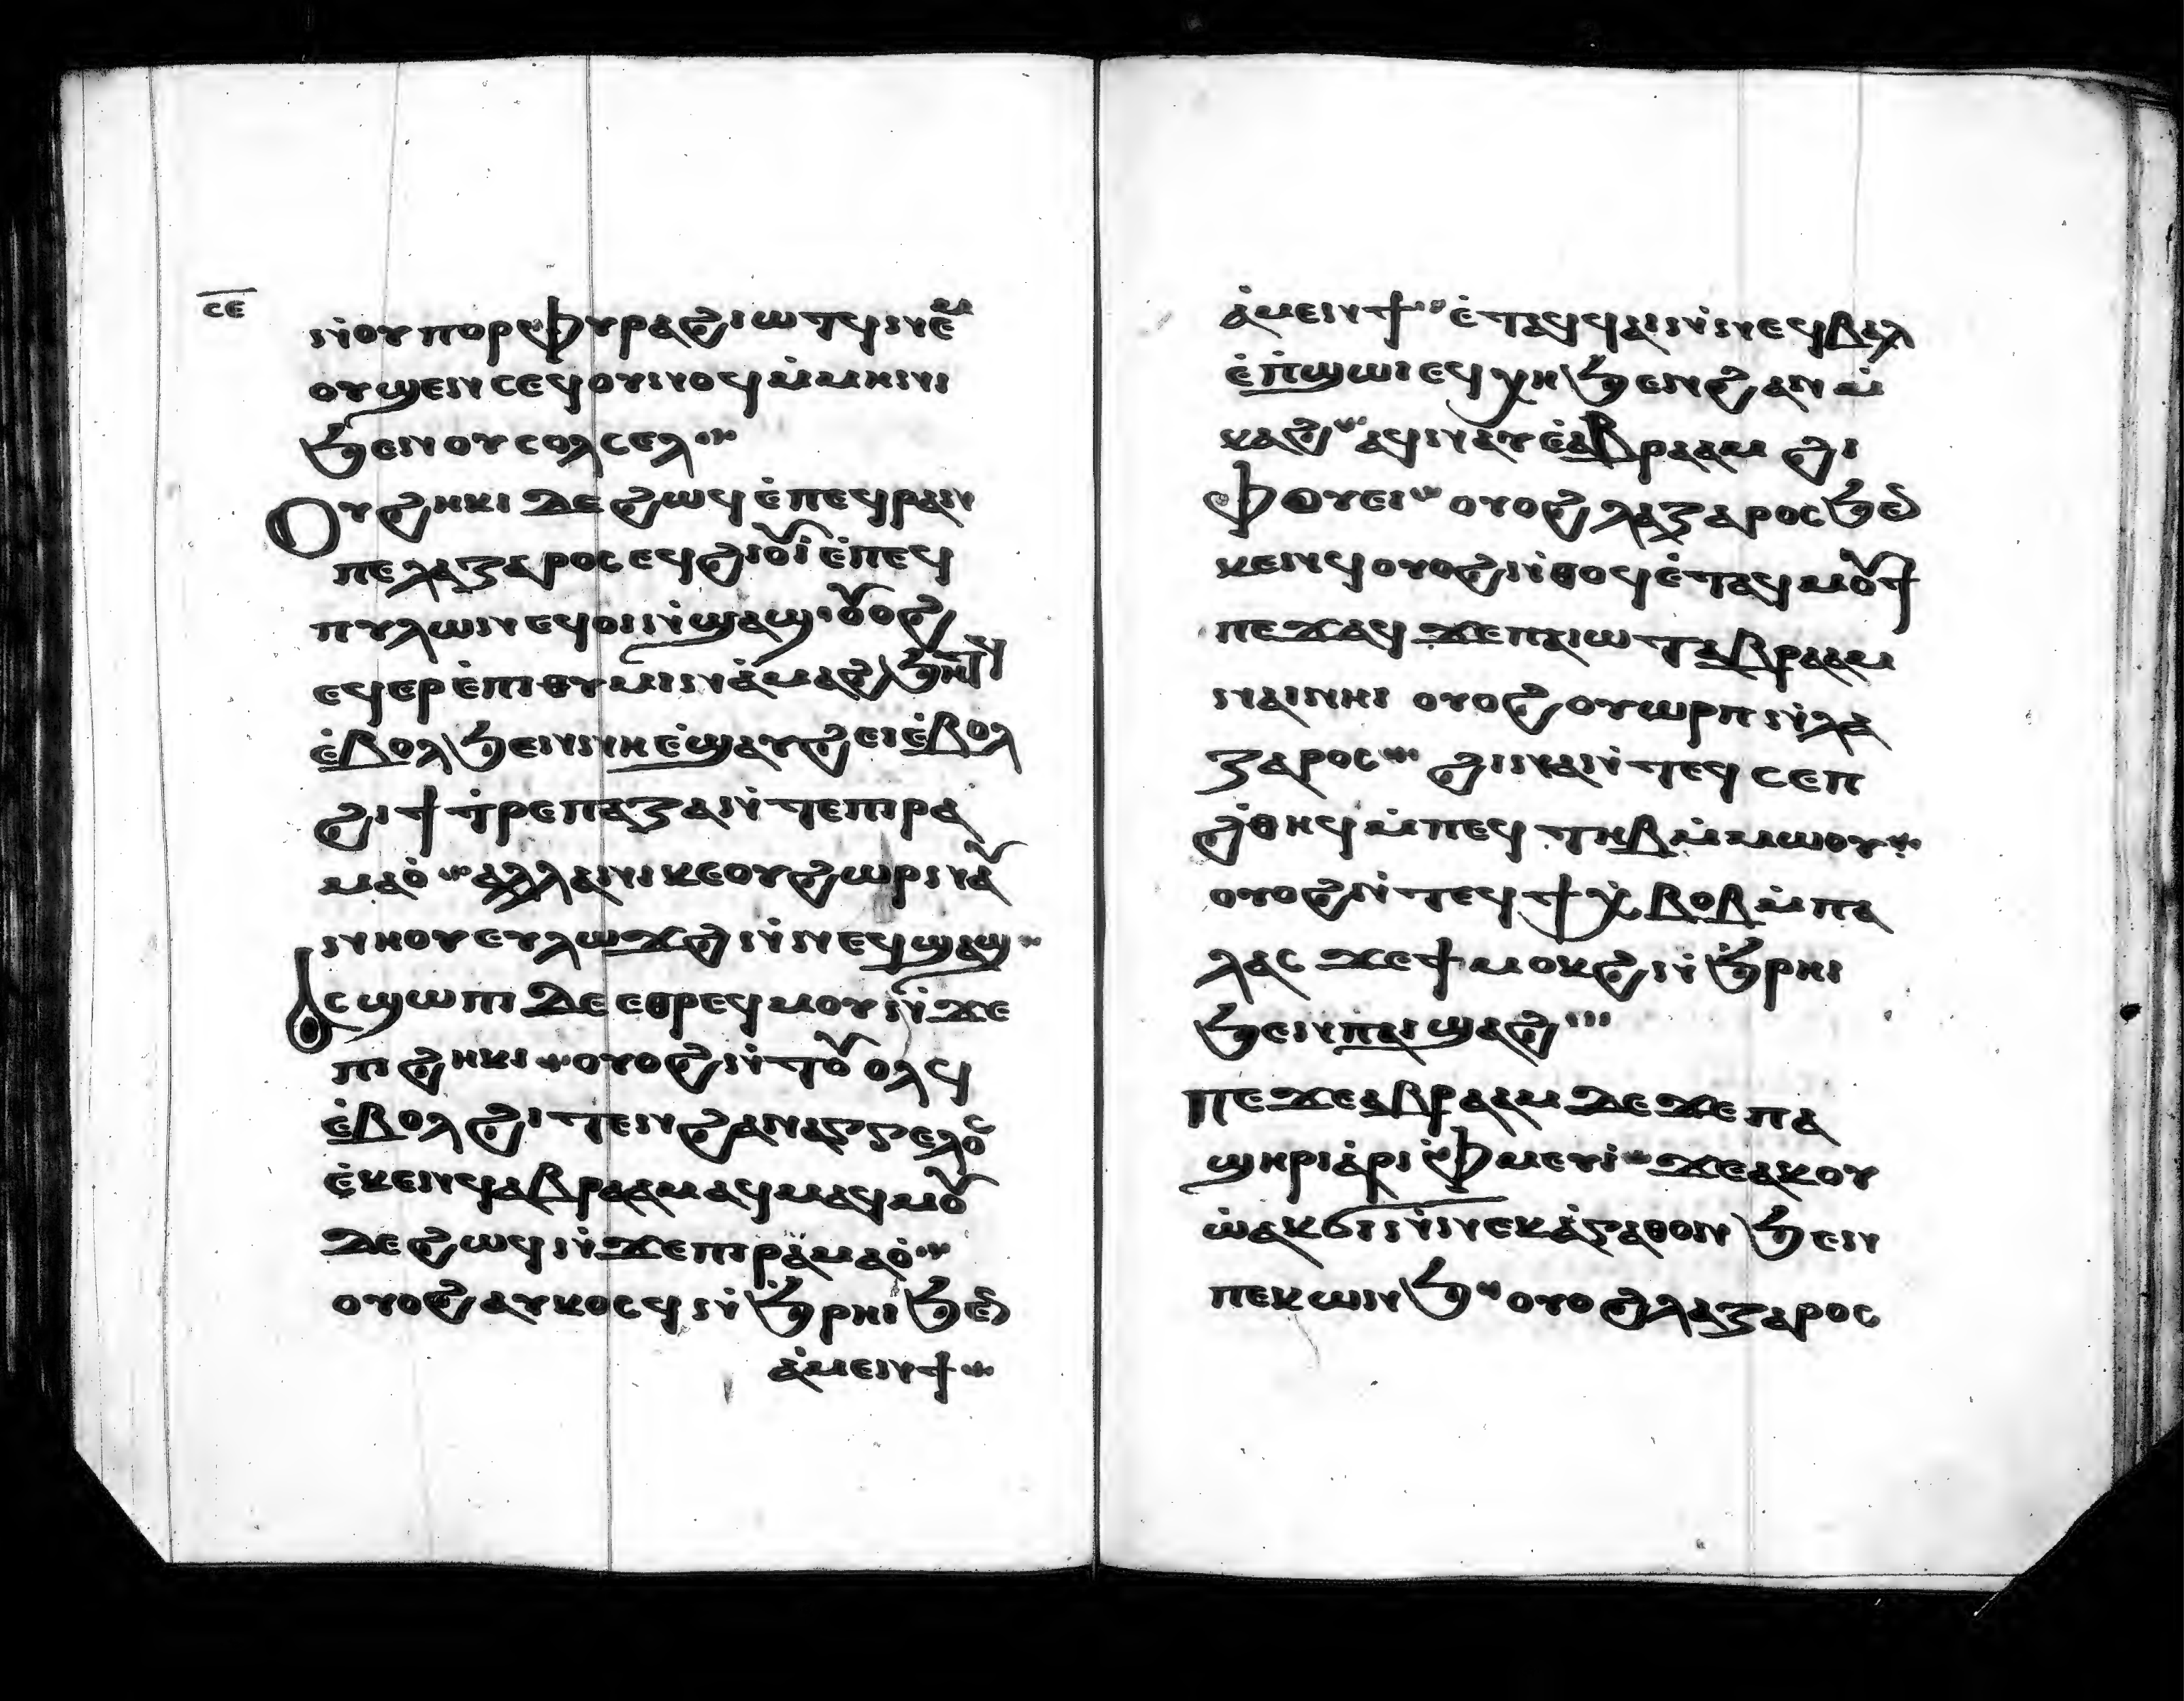 ⲥⲉ
ⲛ̀ⲟⲩⲡⲟⲣⲫⲩⲣⲁϩⲓⲱⲧϥⲛⲉⲙ
ⲟⲩϣⲉⲛⲥⲉϥⲟⲩⲛⲟϥⲙ̀ⲙⲏⲛⲓ
ϧⲉⲛⲟⲩⲥⲟⲗⲥⲉⲗ
Ⲟⲩϩⲏⲕⲓ ⲇⲉ ϩⲱϥ ⲉ̀ⲡⲉϥⲣⲁⲛ
ⲡⲉⲗⲁⲍⲁⲣⲟⲥⲉϥϩⲓⲟⲩⲓ̀ⲉ̀ⲡⲉϥ
ⲡⲩⲗⲱⲛⲉϥⲟⲓⲛ̀ϣⲁϣⲟⲩⲟϩ
ⲉϥⲉⲣⲉ̀ⲡⲓⲑⲩⲙⲓⲛⲁ̀ⲙⲁϩϧⲏⲧϥ
ⲉ̀ⲃⲟⲗϧⲉⲛⲛⲏⲉ̀ϣⲁⲩϩⲉⲓⲉ̀ⲃⲟⲗ
ϩⲓϯⲧ̀ⲣⲉⲡⲁⲍⲁⲛ̀ⲧⲉⲡⲓⲣⲁ
ⲙⲁⲟ̀ ⲁⲗⲗⲁⲛⲓⲕⲉⲟⲩϩⲱⲣⲛⲁⲩ
ⲛⲏⲟⲩⲉⲩⲗⲱϫϩⲛ̀ⲛⲉϥϣⲁϣ
Ⲁⲥϣⲱⲡⲓ ⲇⲉ ⲉⲑⲣⲉϥⲙⲟⲩⲛ̀ϫⲉ
ⲡⲓϩⲏⲕⲓ ⲟⲩⲟϩⲛ̀ⲧⲟⲩⲟⲗϥ
ⲉ̀ⲃⲟⲗϩⲓⲧⲉⲛϩⲁⲛⲁⲅⲅⲉⲗⲟⲥ
ⲉ̀ⲕⲉⲛϥⲁⲃⲣⲁⲁⲙⲁϥⲙⲁϥⲙⲟⲩ
ⲇⲉϩⲱϥⲛ̀ϫⲉⲡⲓⲣⲁⲙⲁⲟ̀
ⲟⲩⲟϩⲁⲩⲕⲟⲥϥⲛ̀ϧⲣⲏⲓϧⲉⲛ
ⲁ̀ⲙⲉⲛϯ
ⲁ̀ⲙⲉⲛϯ ⲉ̀ⲧⲁϥϥⲁⲓⲛ̀ⲛⲉϥⲃⲁⲗ
ⲉ̀ⲡ̀ϣⲱⲓⲉϥⲭⲏϧⲉⲛϩⲁⲛⲙ̀
ⲕⲁϩ ⲁϥⲛⲁⲩⲉ̀ⲁⲃⲣⲁⲁⲙ ϩⲓ
ⲫⲟⲩⲉⲓ ⲟⲩⲟϩⲗⲁⲍⲁⲣⲟⲥϧⲉⲛ
ⲕⲉⲛϥⲟⲩⲟϩⲛ̀ⲑⲟϥⲉ̀ⲧⲁϥⲙⲟⲩϯ
ⲡⲉϫⲁϥϫⲉⲡⲁⲓⲱⲧⲁⲃⲣⲁⲁⲙ
ⲛⲁⲓⲛⲏⲓ ⲟⲩⲟϩⲟⲩⲱⲣⲡⲛ̀ⲗⲁ
ⲍⲁⲣⲟⲥ ϩⲓⲛⲁⲛ̀ⲧⲉϥⲥⲉⲡ
ϩ̀ⲑⲏϥⲙ̀ⲡⲉϥⲧⲏⲃⲙ̀ⲙⲱⲟⲩ
ⲟⲩⲟϩⲛ̀ⲧⲉϥϯⲭ̀ⲃⲟⲃⲙ̀ⲡⲁ
ⲗⲁⲥ ϫⲉϯⲙⲟⲕϩⲛ̀ϧⲣⲏⲓ
ϧⲉⲛⲡⲁⲓϣⲁϩ
ⲡⲉϫⲉⲁⲃⲣⲁⲁⲙ ⲇⲉ ϫⲉ ⲡⲁ
ϣⲏⲣⲓⲁ̀ⲣⲓⲫ̀ⲙⲉⲩⲓ̀ ϫⲉⲁⲕⲟⲩ
ⲱ̀ⲁⲕϭⲓⲛ̀ⲛⲉⲕⲁ̀ⲅⲁⲑⲟⲛ ϧⲉⲛ
ⲡⲉⲕⲱⲛϧ ⲟⲩⲟϩⲗⲁⲍⲁⲣⲟⲥ